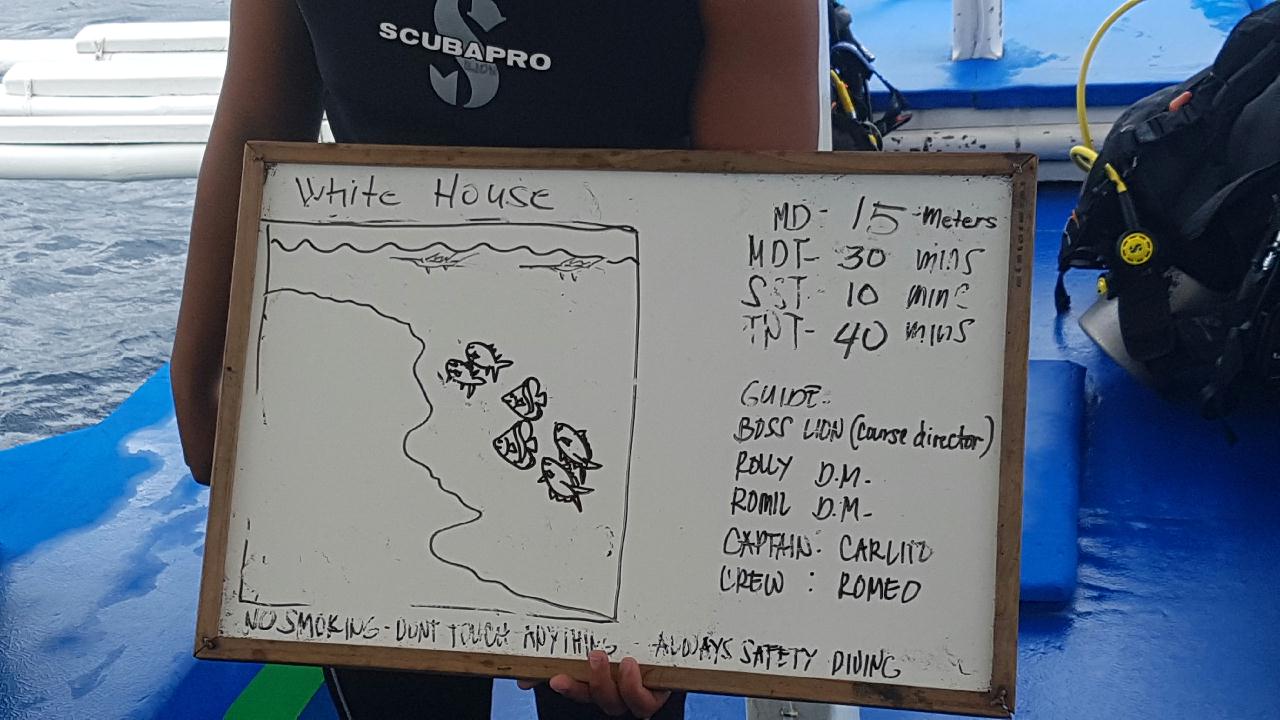 SCUBAPRO
White House
MD- 15 -Meters
MDT- 30 mins
SST- 10 mins
TNT- 40 mins
GUIDE-
BOSS LION (course director)
ROLLY D.M.
ROMIL D.M-
CAPTAIN: CARLITO
CREW : ROMEO
NO SMOKING - DONT TOUCH ANYTHING - ALWAYS SAFETY DIVING